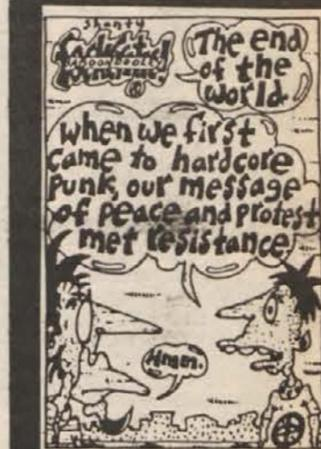 Shanty
The end
of the
world.
When we first
came to hardcore
punk, our message
of peace and protest
met resistance
Hmm.